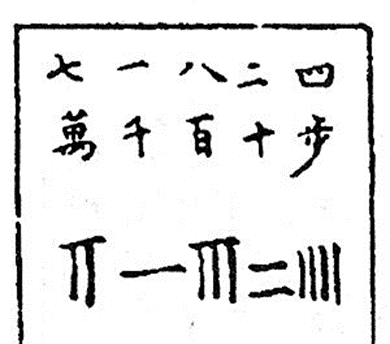 七萬
一千
八百
二十
四步
𝍦𝍩𝍧𝍪𝍣